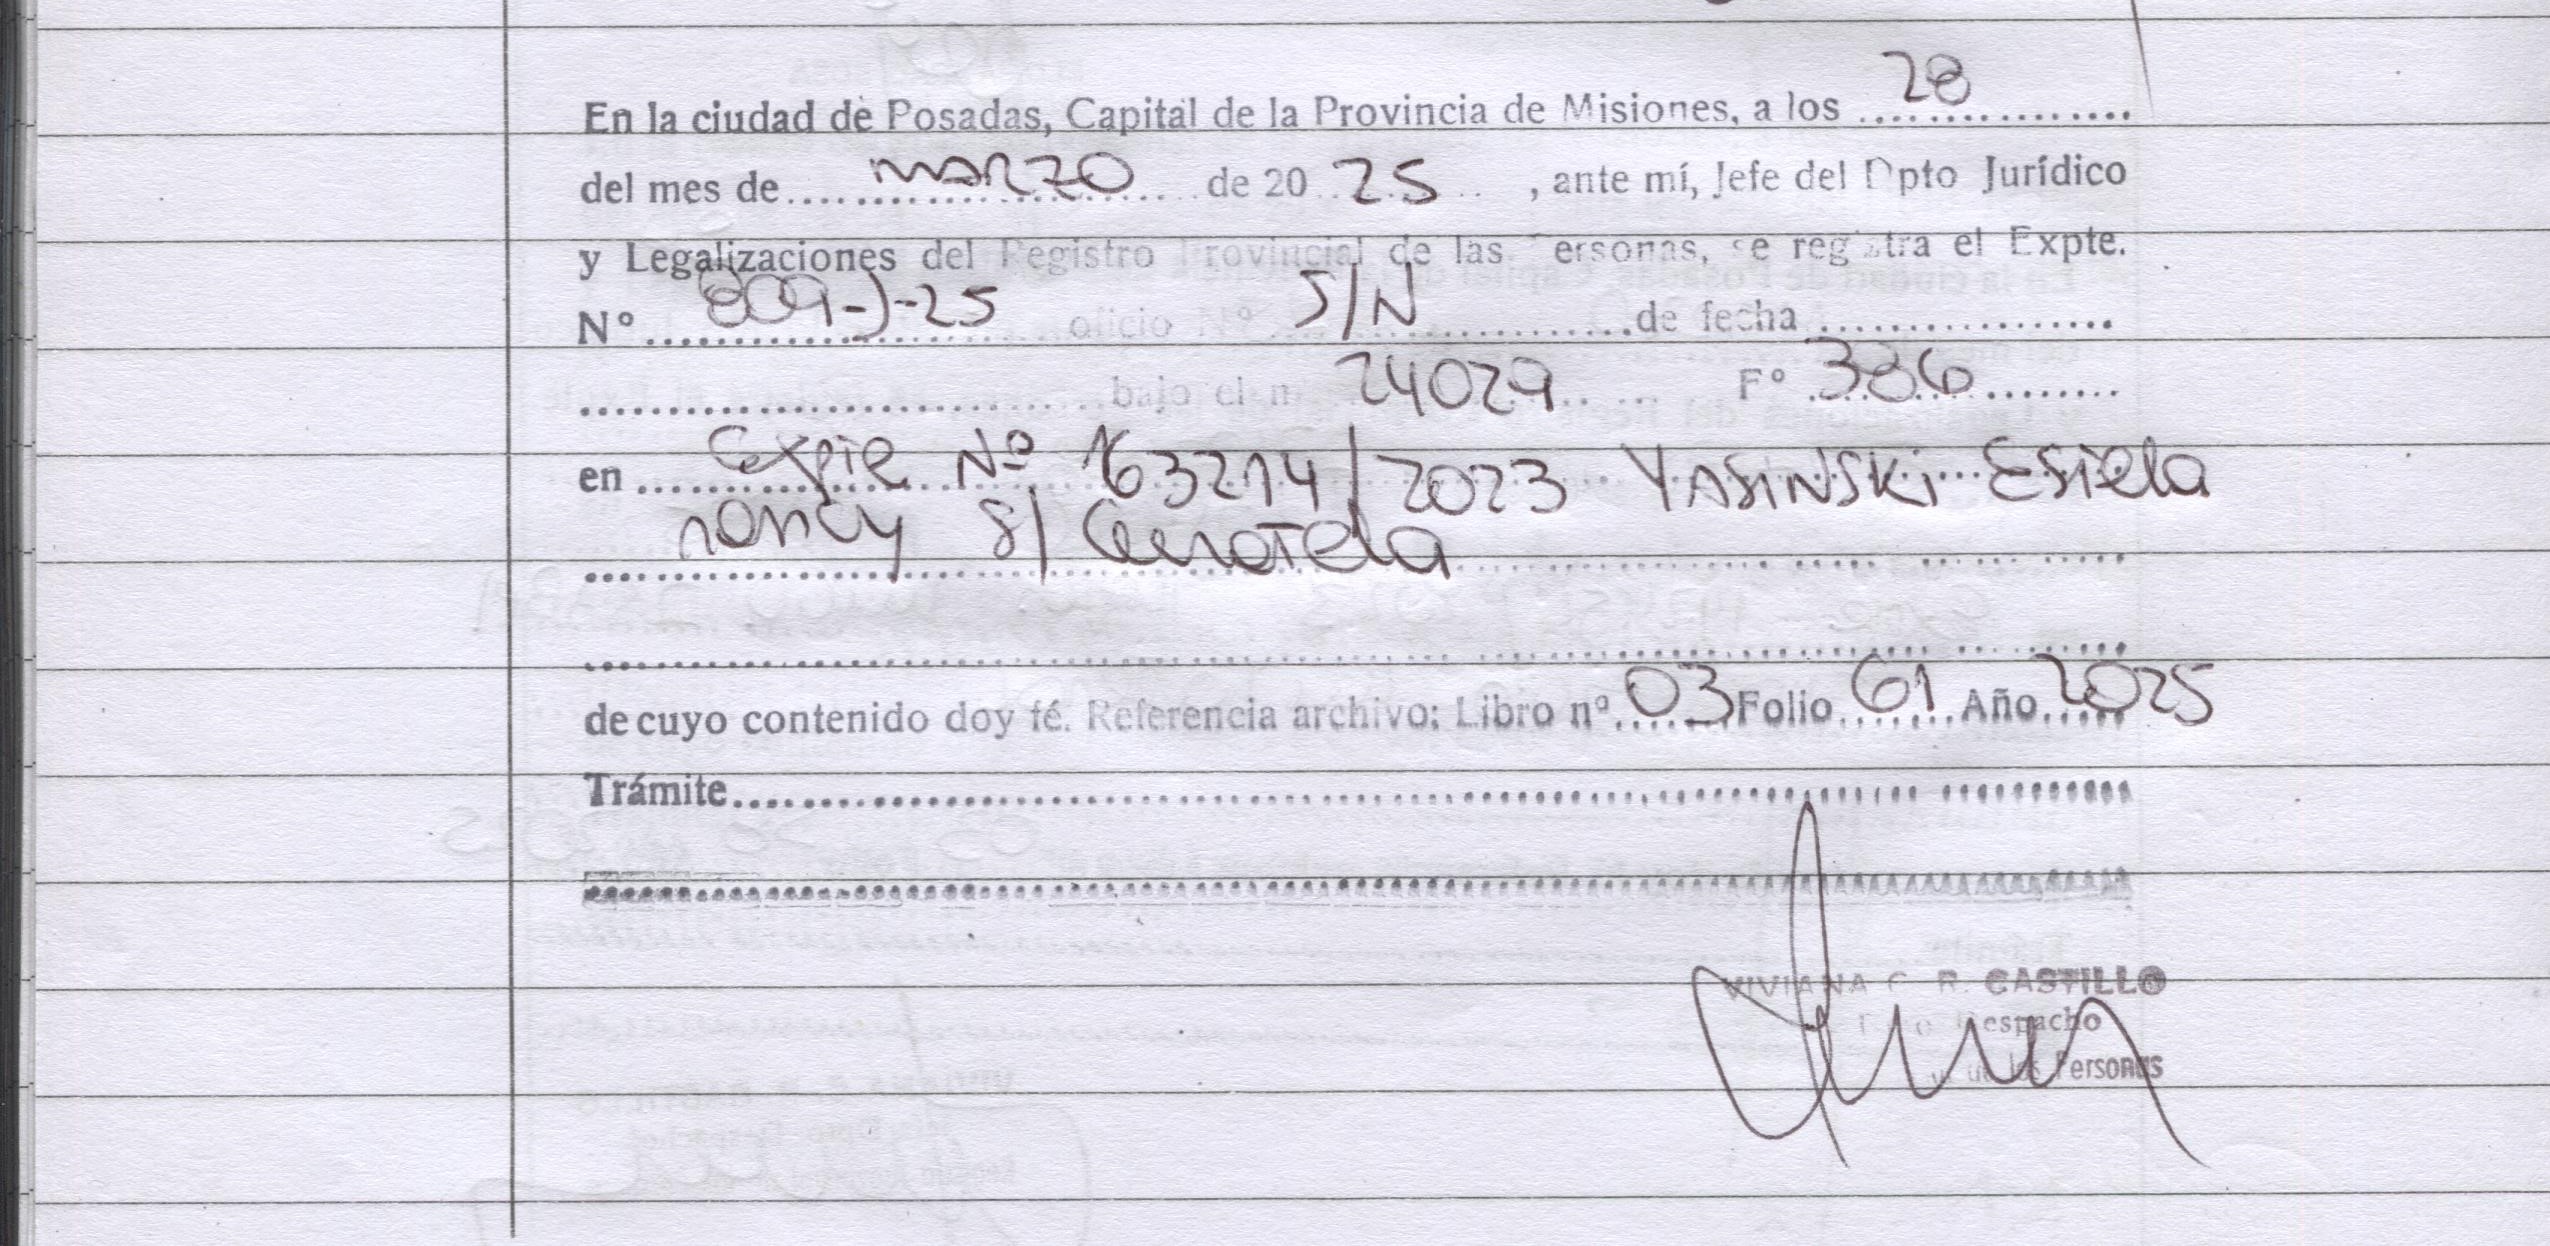 En la ciudad de Posadas, Capital de la Provincia de Misiones, a los 28
del mes de MARZO de 20 25, ante mí, Jefe del Dpto Jurídico
y Legalizaciones del Registro Provincial de las Personas, se registra el Expte.
Nº 809-J-25 oficio Nº S/N de fecha
bajo el n 24029 Fº 386
en Expte Nº 163214/2023 YASINSKI Estela
nancy S/ Curatela
de cuyo contenido doy fé. Referencia archivo: Libro nº 03 Folio 61 Año 2025
Trámite
VIVIANA R. CASTILLO
Despacho
Personas